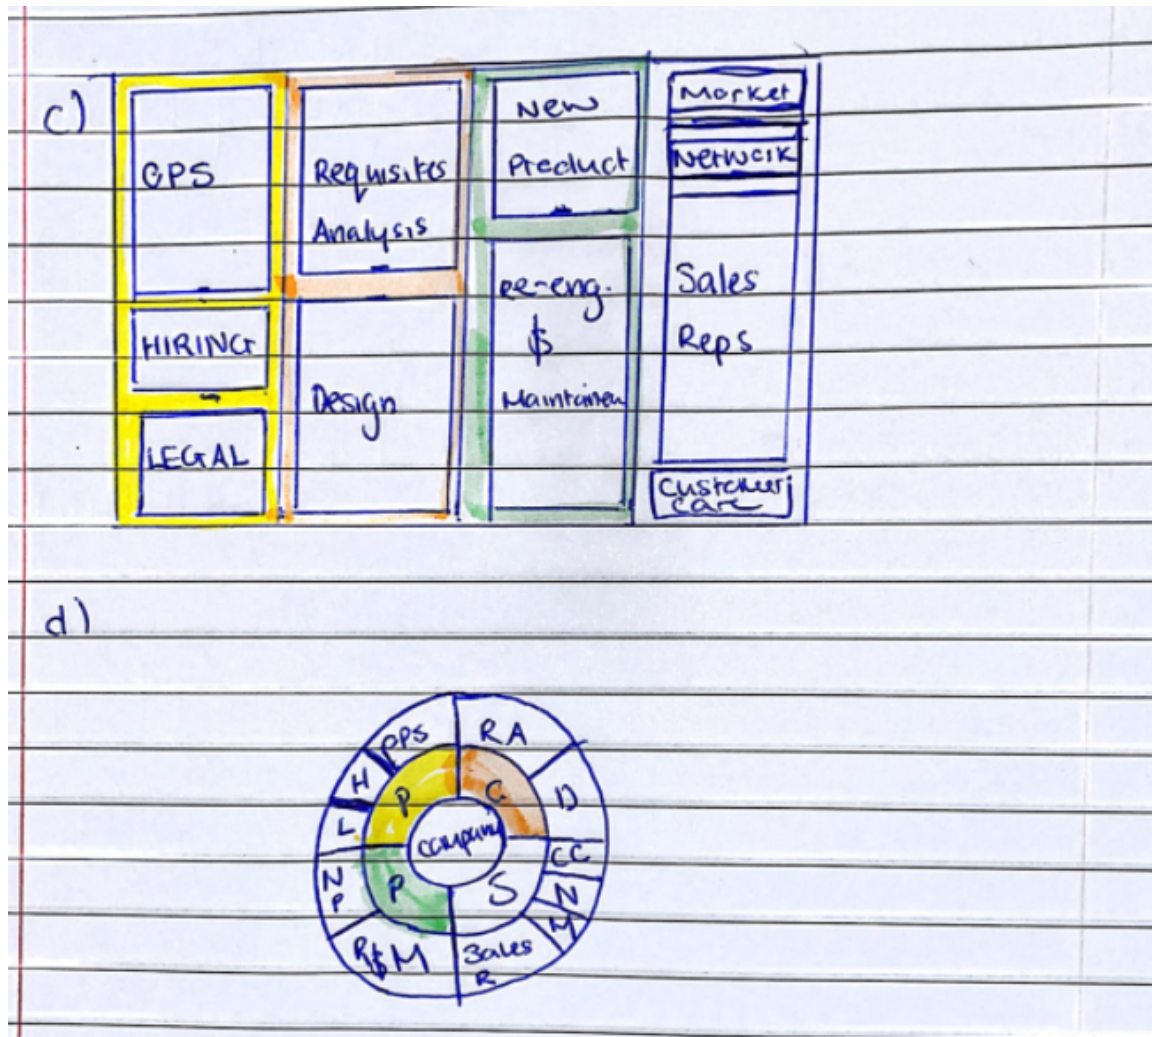 c)
OPS
HIRING
LEGAL
Requisites
Analysis
Design
New
Product
re-eng.
$
Market
Network
Sales
Reps
Customer
care
d)
OPS
RA
H
P
C
D
L
company
CC
N
P
P
S
N
M
R$M
Sales
R